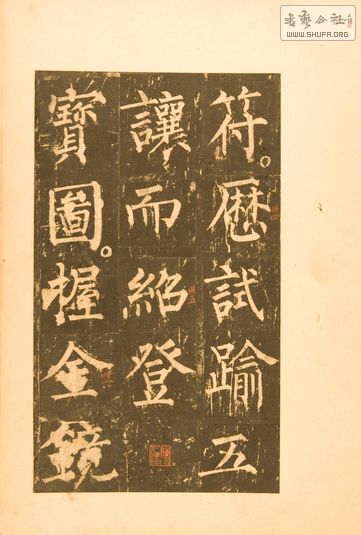 書藝公社
WWW.SHUFA.ORG
符。歷試踰五
讓而紹登
寶圖。握金鏡